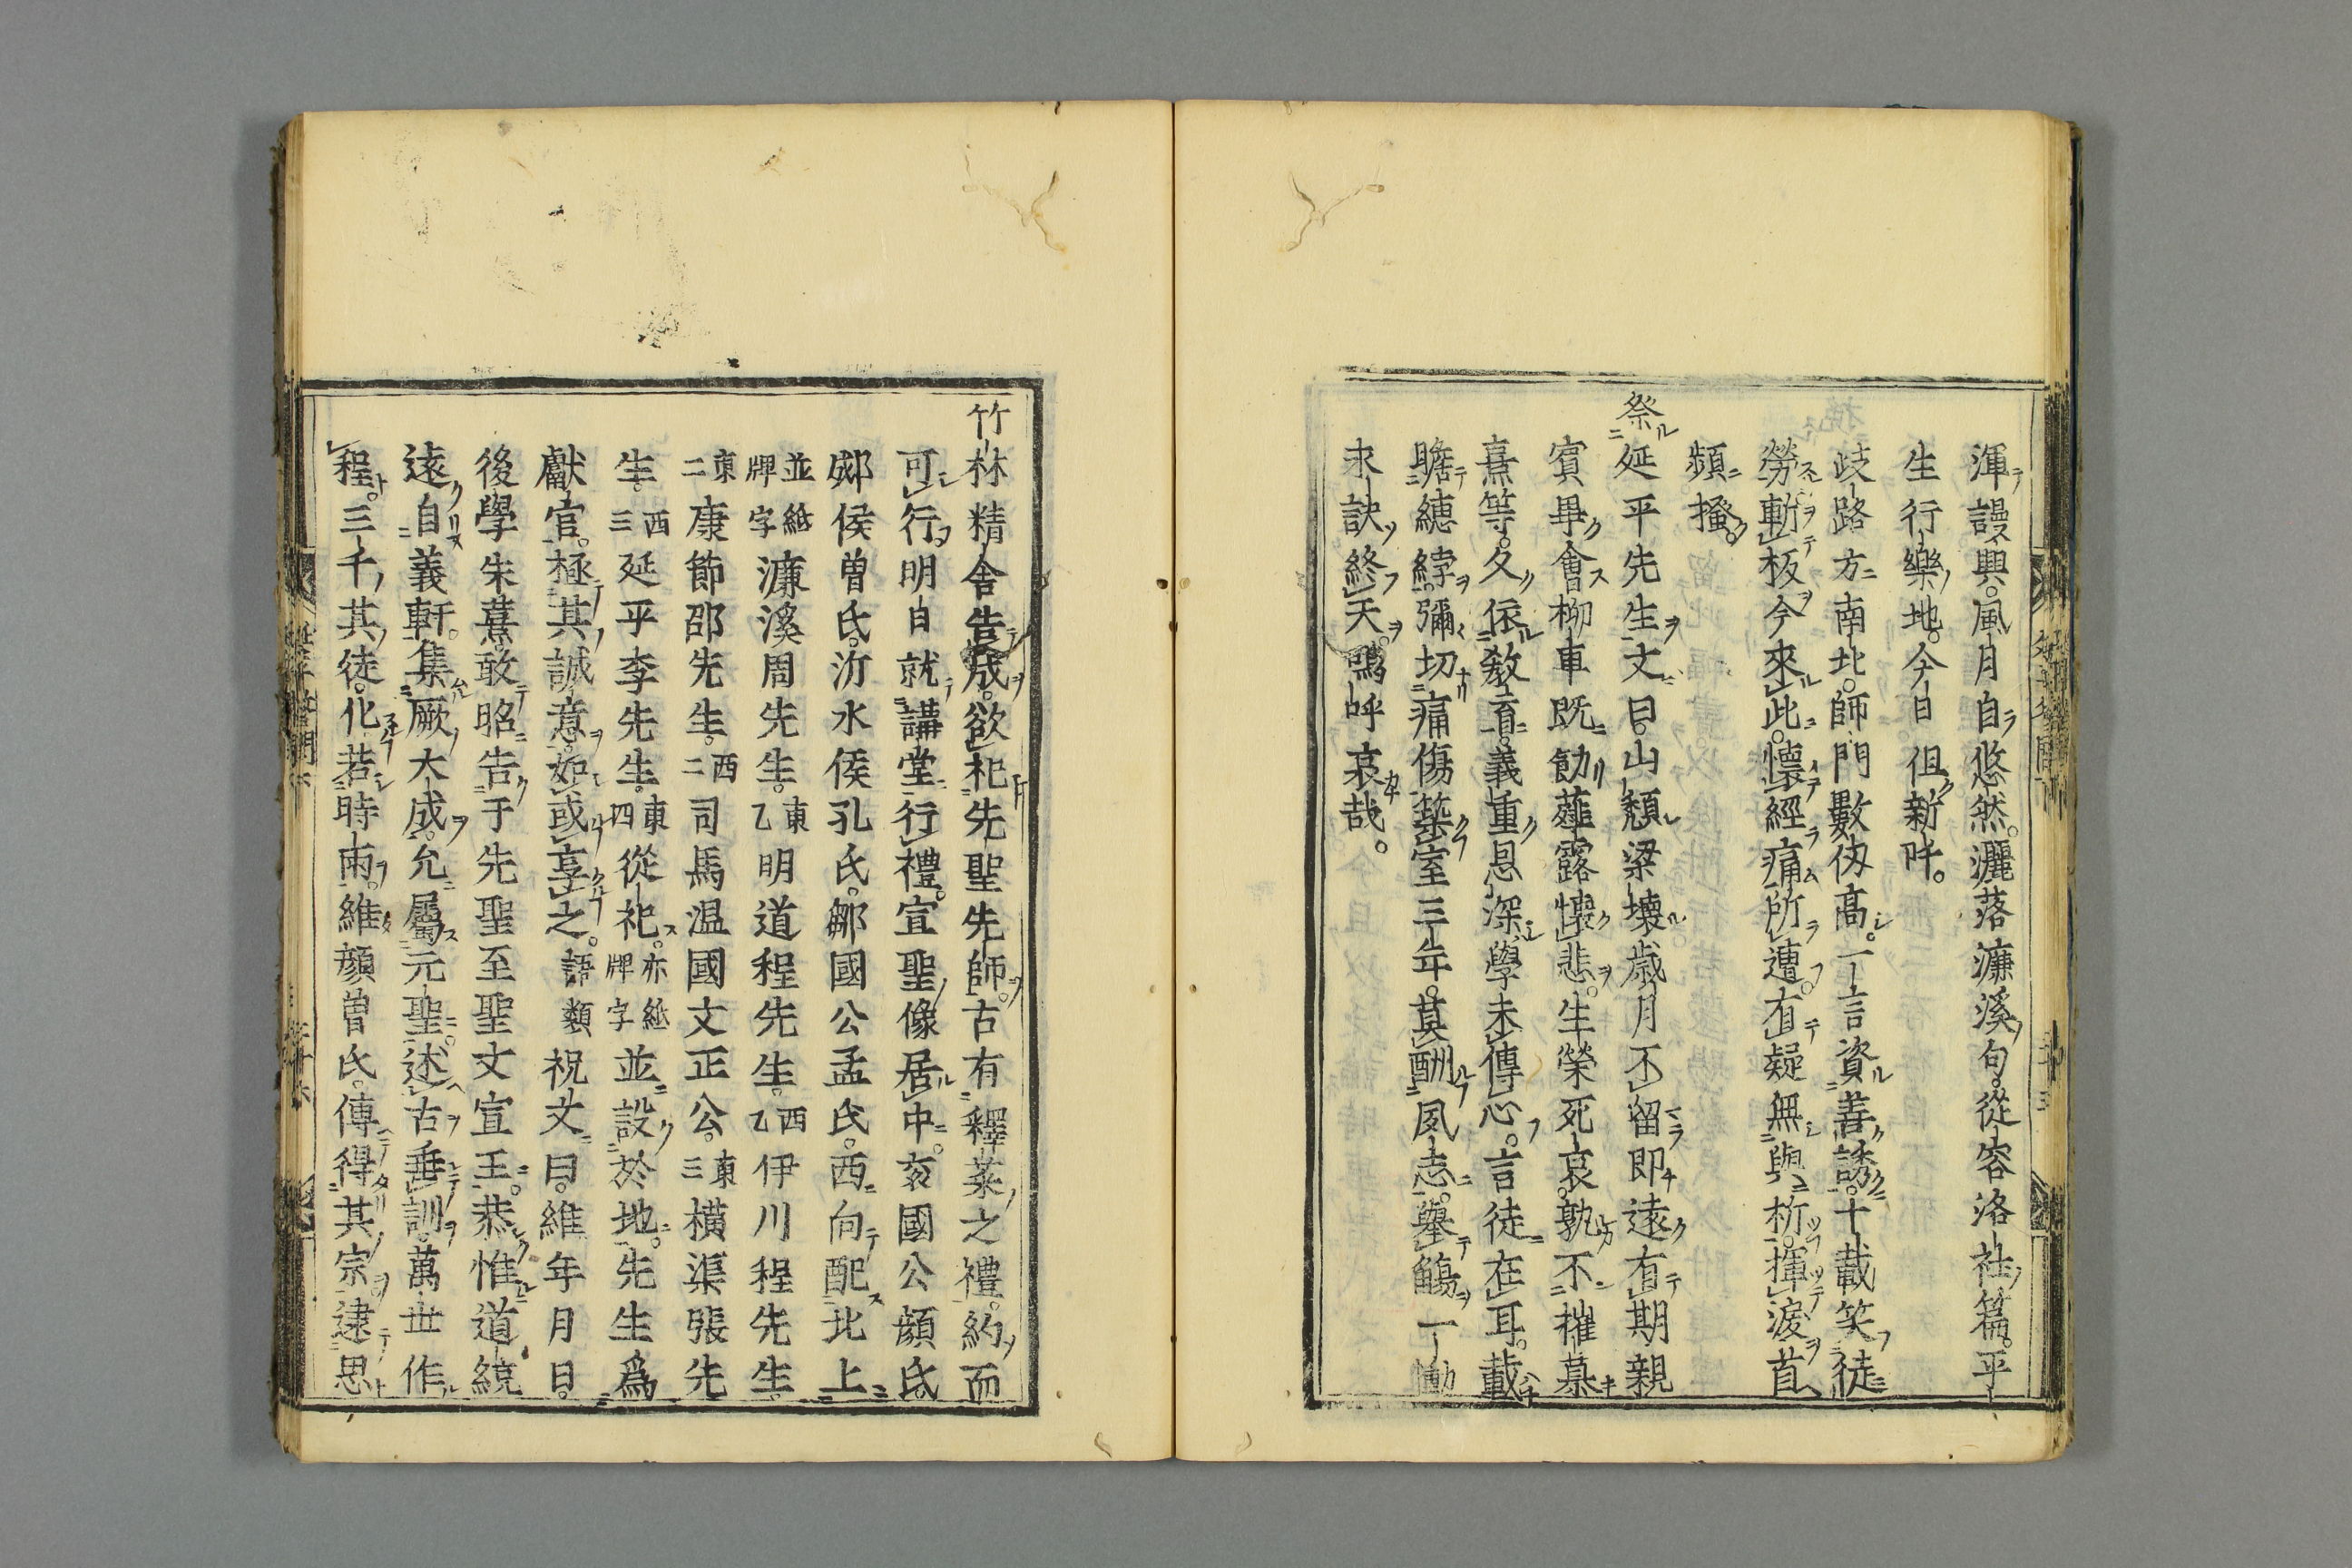 渾謾興。風月自悠然。灑落濂溪句。從容洛社篇。平
生行樂地。今日但新阡。
歧路方南北。師門數仭高。一言資善誘。十載笑徒
勞。斬板今來此。懷經痛所遭。有疑無與析。揮淚首
頻搔。
祭延平先生文曰。山頽梁壞歳月不留即遠有期親
賓畢會栁車既飭薤露懷悲。生榮死哀。孰不摧慕
熹等。久依教育。義重恩深。學未傳心。言徒在耳。載
瞻繐綍。彌切痛傷。築室三年。莫酬夙志。擧觴一慟
永訣終天。嗚呼哀哉。
竹林精舍告成。欲祀先聖先師。古有釋菜之禮。約而
可行。明日就講堂行禮。宣聖像居中。兖國公顔氏
郕侯曽氏。沂水侯孔氏。鄒國公孟氏。西向配北上
並紙牌字濂溪周先生。東乙明道程先生。西乙伊川程先生。
東二康節邵先生。西二司馬温國文正公。東三横渠張先
生。西三延平李先生。東四從祀。亦紙牌字並設於地。先生爲
獻官。極其誠意。如或享之。語類祝文曰。維年月日。
後學朱熹。敢昭告于先聖至聖文宣王。恭惟道統
遠自義軒。集厥大成。允屬元聖。述古垂訓。萬世作
程。三千其徒。化若時雨。維顔曽氏。傳得其宗。逮思